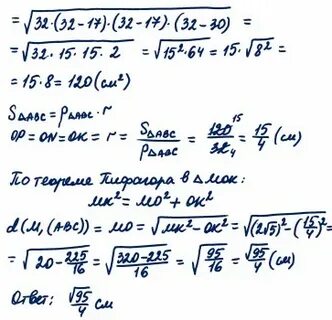 =√32·(32-17)·(32-17)·(32-30) =
=√32·15·15·2 = √15²·64 = 15·√8² =
=15·8=120 (см²)
S△ABC = P△ABC · r
OP=ON=OK=r= S△ABC/P△ABC = 120 15/32 4 = 15/4 (см)
По теореме Пифагора в △MOK:
MK²=MO²+OK²
d(M,(ABC))=MO=√MK²-OK²=√(2√5)²-(15/4)²=
=√20-225/16=√320-225/16=√95/16=√95/4 (см)
Ответ: √95/4 см